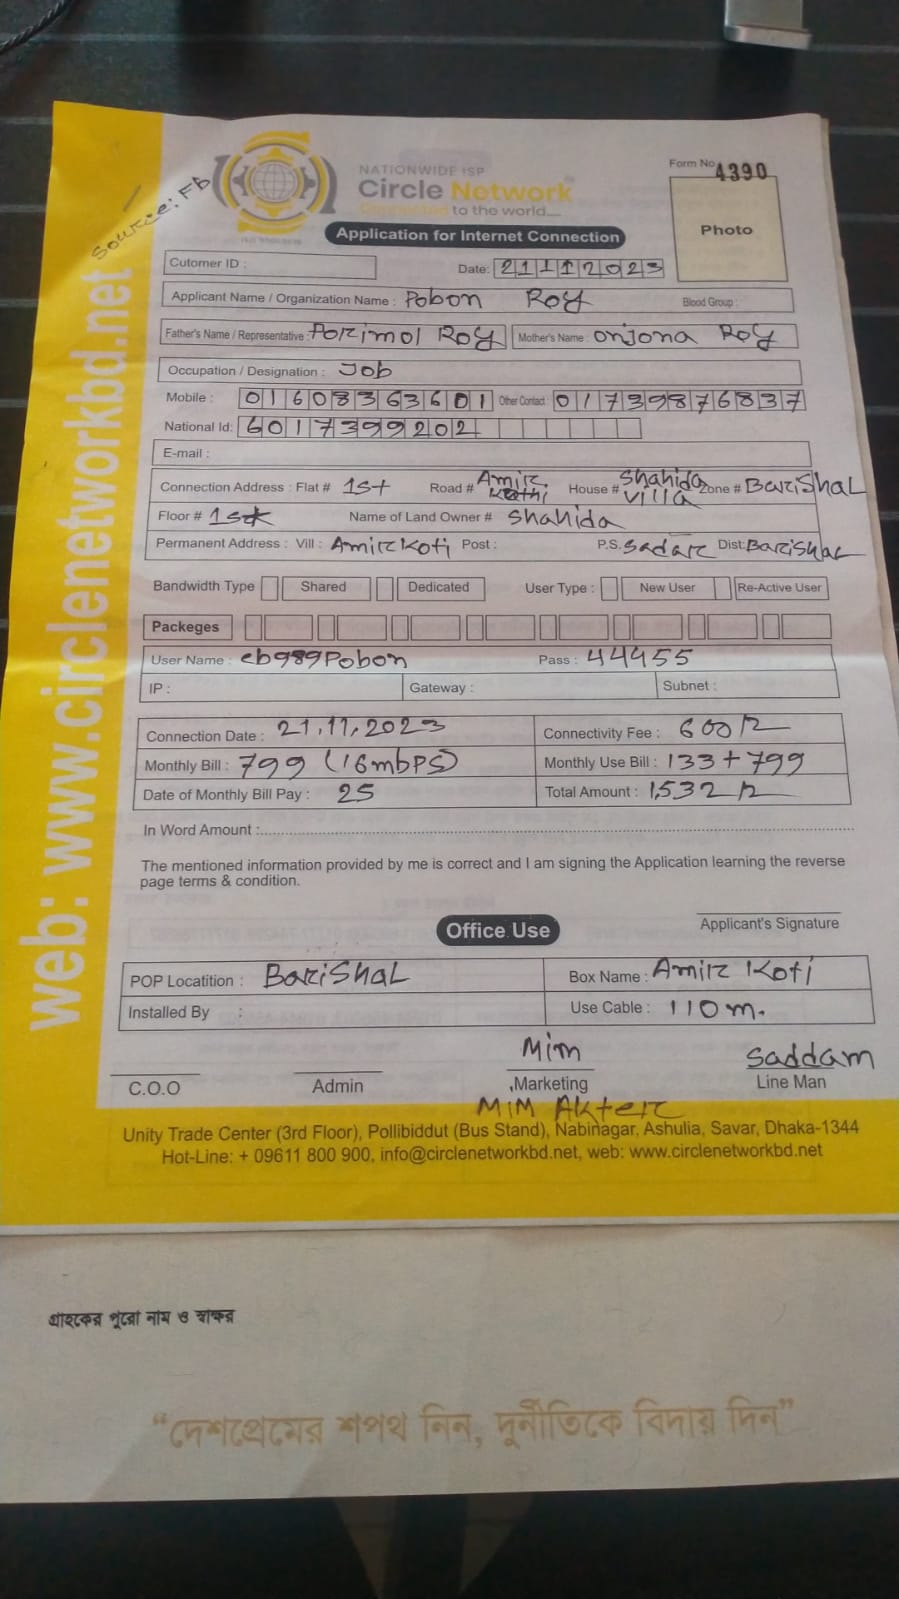 Source: FB
NATIONWIDE ISP
Circle Network
Connected to the world....
Form No. 4390
Photo
Application for Internet Connection
Cutomer ID :
Date: 21112023
Applicant Name / Organization Name : Pobon Roy Blood Group :
Father's Name / Representative : Porimol Roy Mother's Name : onjona Roy
Occupation / Designation : Job
Mobile : 01608363601 Other Contact 01739876837
National Id: 6017399202
E-mail :
Connection Address : Flat # 1st Road # Amir Kothi House # Shahida villa Zone # Barishal
Floor # 1st Name of Land Owner # Shahida
Permanent Address : Vill : Amir Koti Post : P.S. Sadar Dist: Barishal
Bandwidth Type Shared Dedicated User Type : New User Re-Active User
Packeges
User Name : cb989Pobon Pass : 44455
IP : Gateway : Subnet :
Connection Date : 21.11.2023 Connectivity Fee : 600/=
Monthly Bill : 799 (16mbps) Monthly Use Bill : 133+799
Date of Monthly Bill Pay : 25 Total Amount : 1,532/=
In Word Amount :
The mentioned information provided by me is correct and I am signing the Application learning the reverse
page terms & condition.
Applicant's Signature
Office Use
POP Locatition : Barishal Box Name : Amir Koti
Installed By : Use Cable : 110m.
Mim Saddam
C.O.O Admin Marketing Line Man
Mim Akter
Unity Trade Center (3rd Floor), Pollibiddut (Bus Stand), Nabinagar, Ashulia, Savar, Dhaka-1344
Hot-Line: + 09611 800 900, info@circlenetworkbd.net, web: www.circlenetworkbd.net
web: www.circlenetworkbd.net
গ্রাহকের পুরো নাম ও স্বাক্ষর
“দেশপ্রেমের শপথ নিন, দুর্নীতিকে বিদায় দিন”